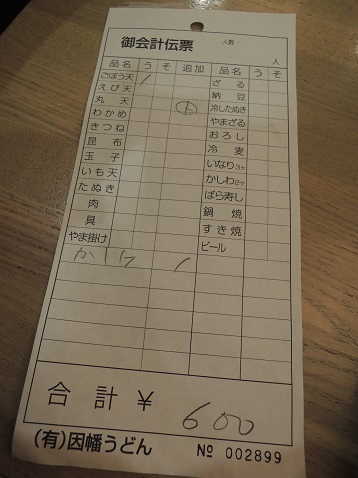 御会計伝票 人数 人
品名 う そ 追加 品名 う そ
ごぼう天 / ざる
えび天 納豆
丸天 ① 冷したぬき
わかめ やまざる
きつね おろし
昆布 冷麦
玉子 いなり3ヶ
いも天 かしわ2ヶ
たぬき ばら寿し
肉 鍋焼
具 すき焼
やま掛け ビール
かしわ /
合計 ¥ 600
(有)因幡うどん № 002899